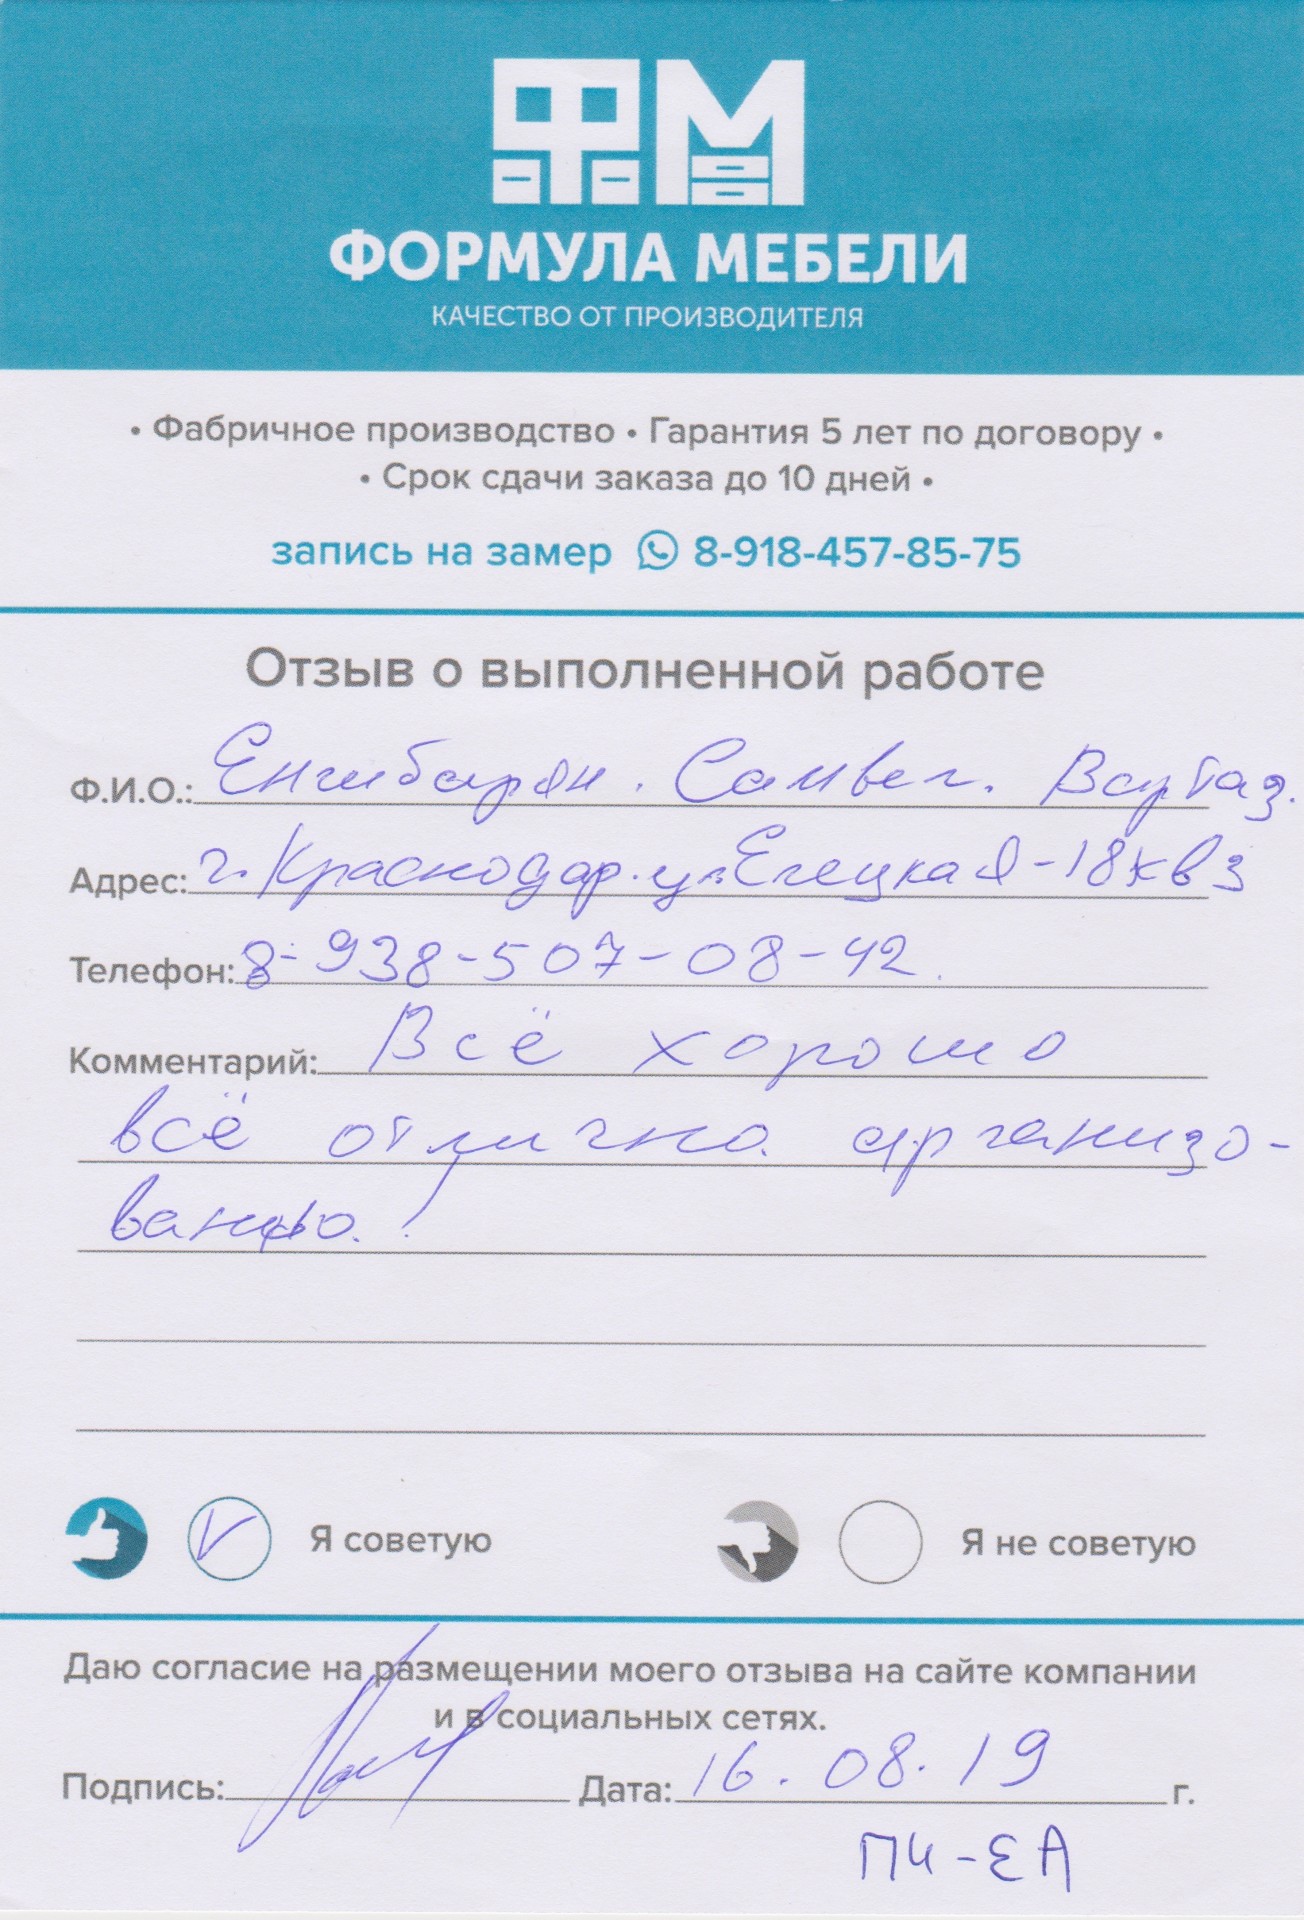 ФМ
ФОРМУЛА МЕБЕЛИ
КАЧЕСТВО ОТ ПРОИЗВОДИТЕЛЯ
• Фабричное производство • Гарантия 5 лет по договору •
• Срок сдачи заказа до 10 дней •
запись на замер 8-918-457-85-75
Отзыв о выполненной работе
Ф.И.О.: Енгибарян. Самвел. Вартаз.
Адрес: г. Краснодар. ул Елецкая-18 кв 3
Телефон: 8-938-507-08-42.
Комментарий: Всё хорошо
всё отлично. арганизо-
ванно. !
Я советую
Я не советую
Даю согласие на размещении моего отзыва на сайте компании
и в социальных сетях.
Подпись: Дата: 16.08.19 г.
ПИ-ЕА